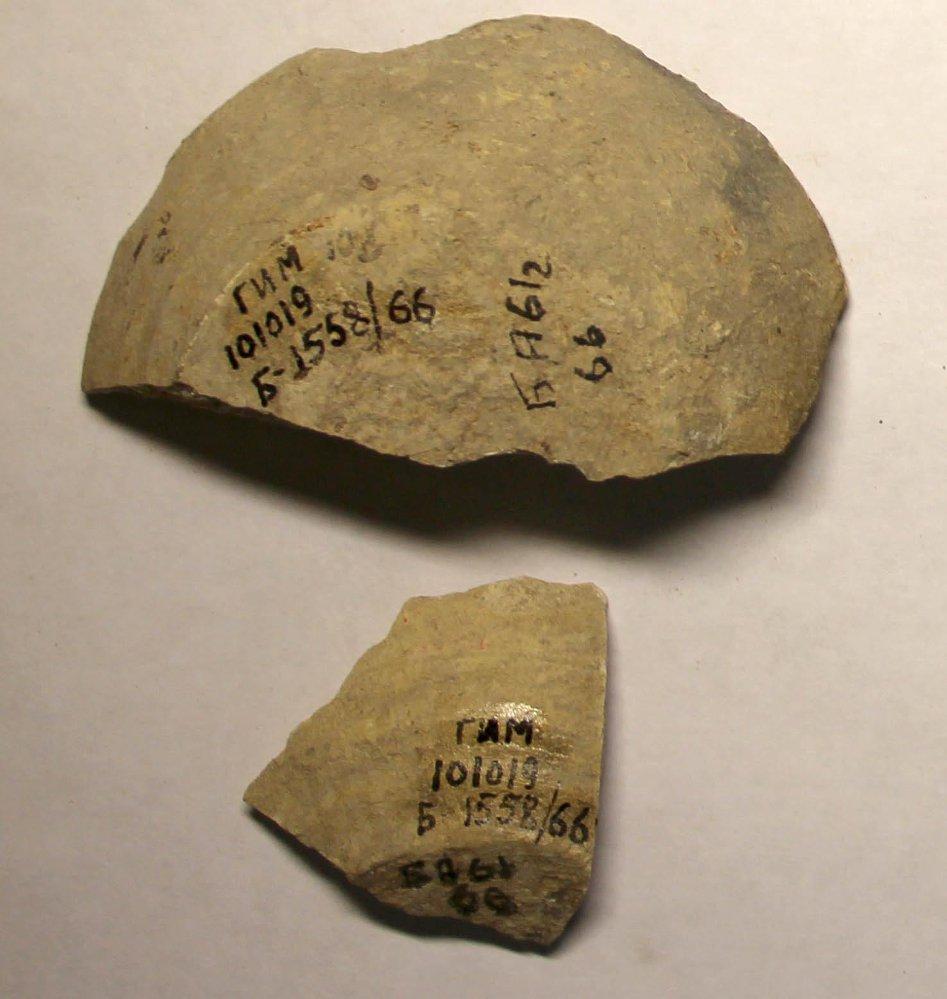 ГИМ
101019
Б-1558/66
БА61г
66
ГИМ
101019
Б 1558/66